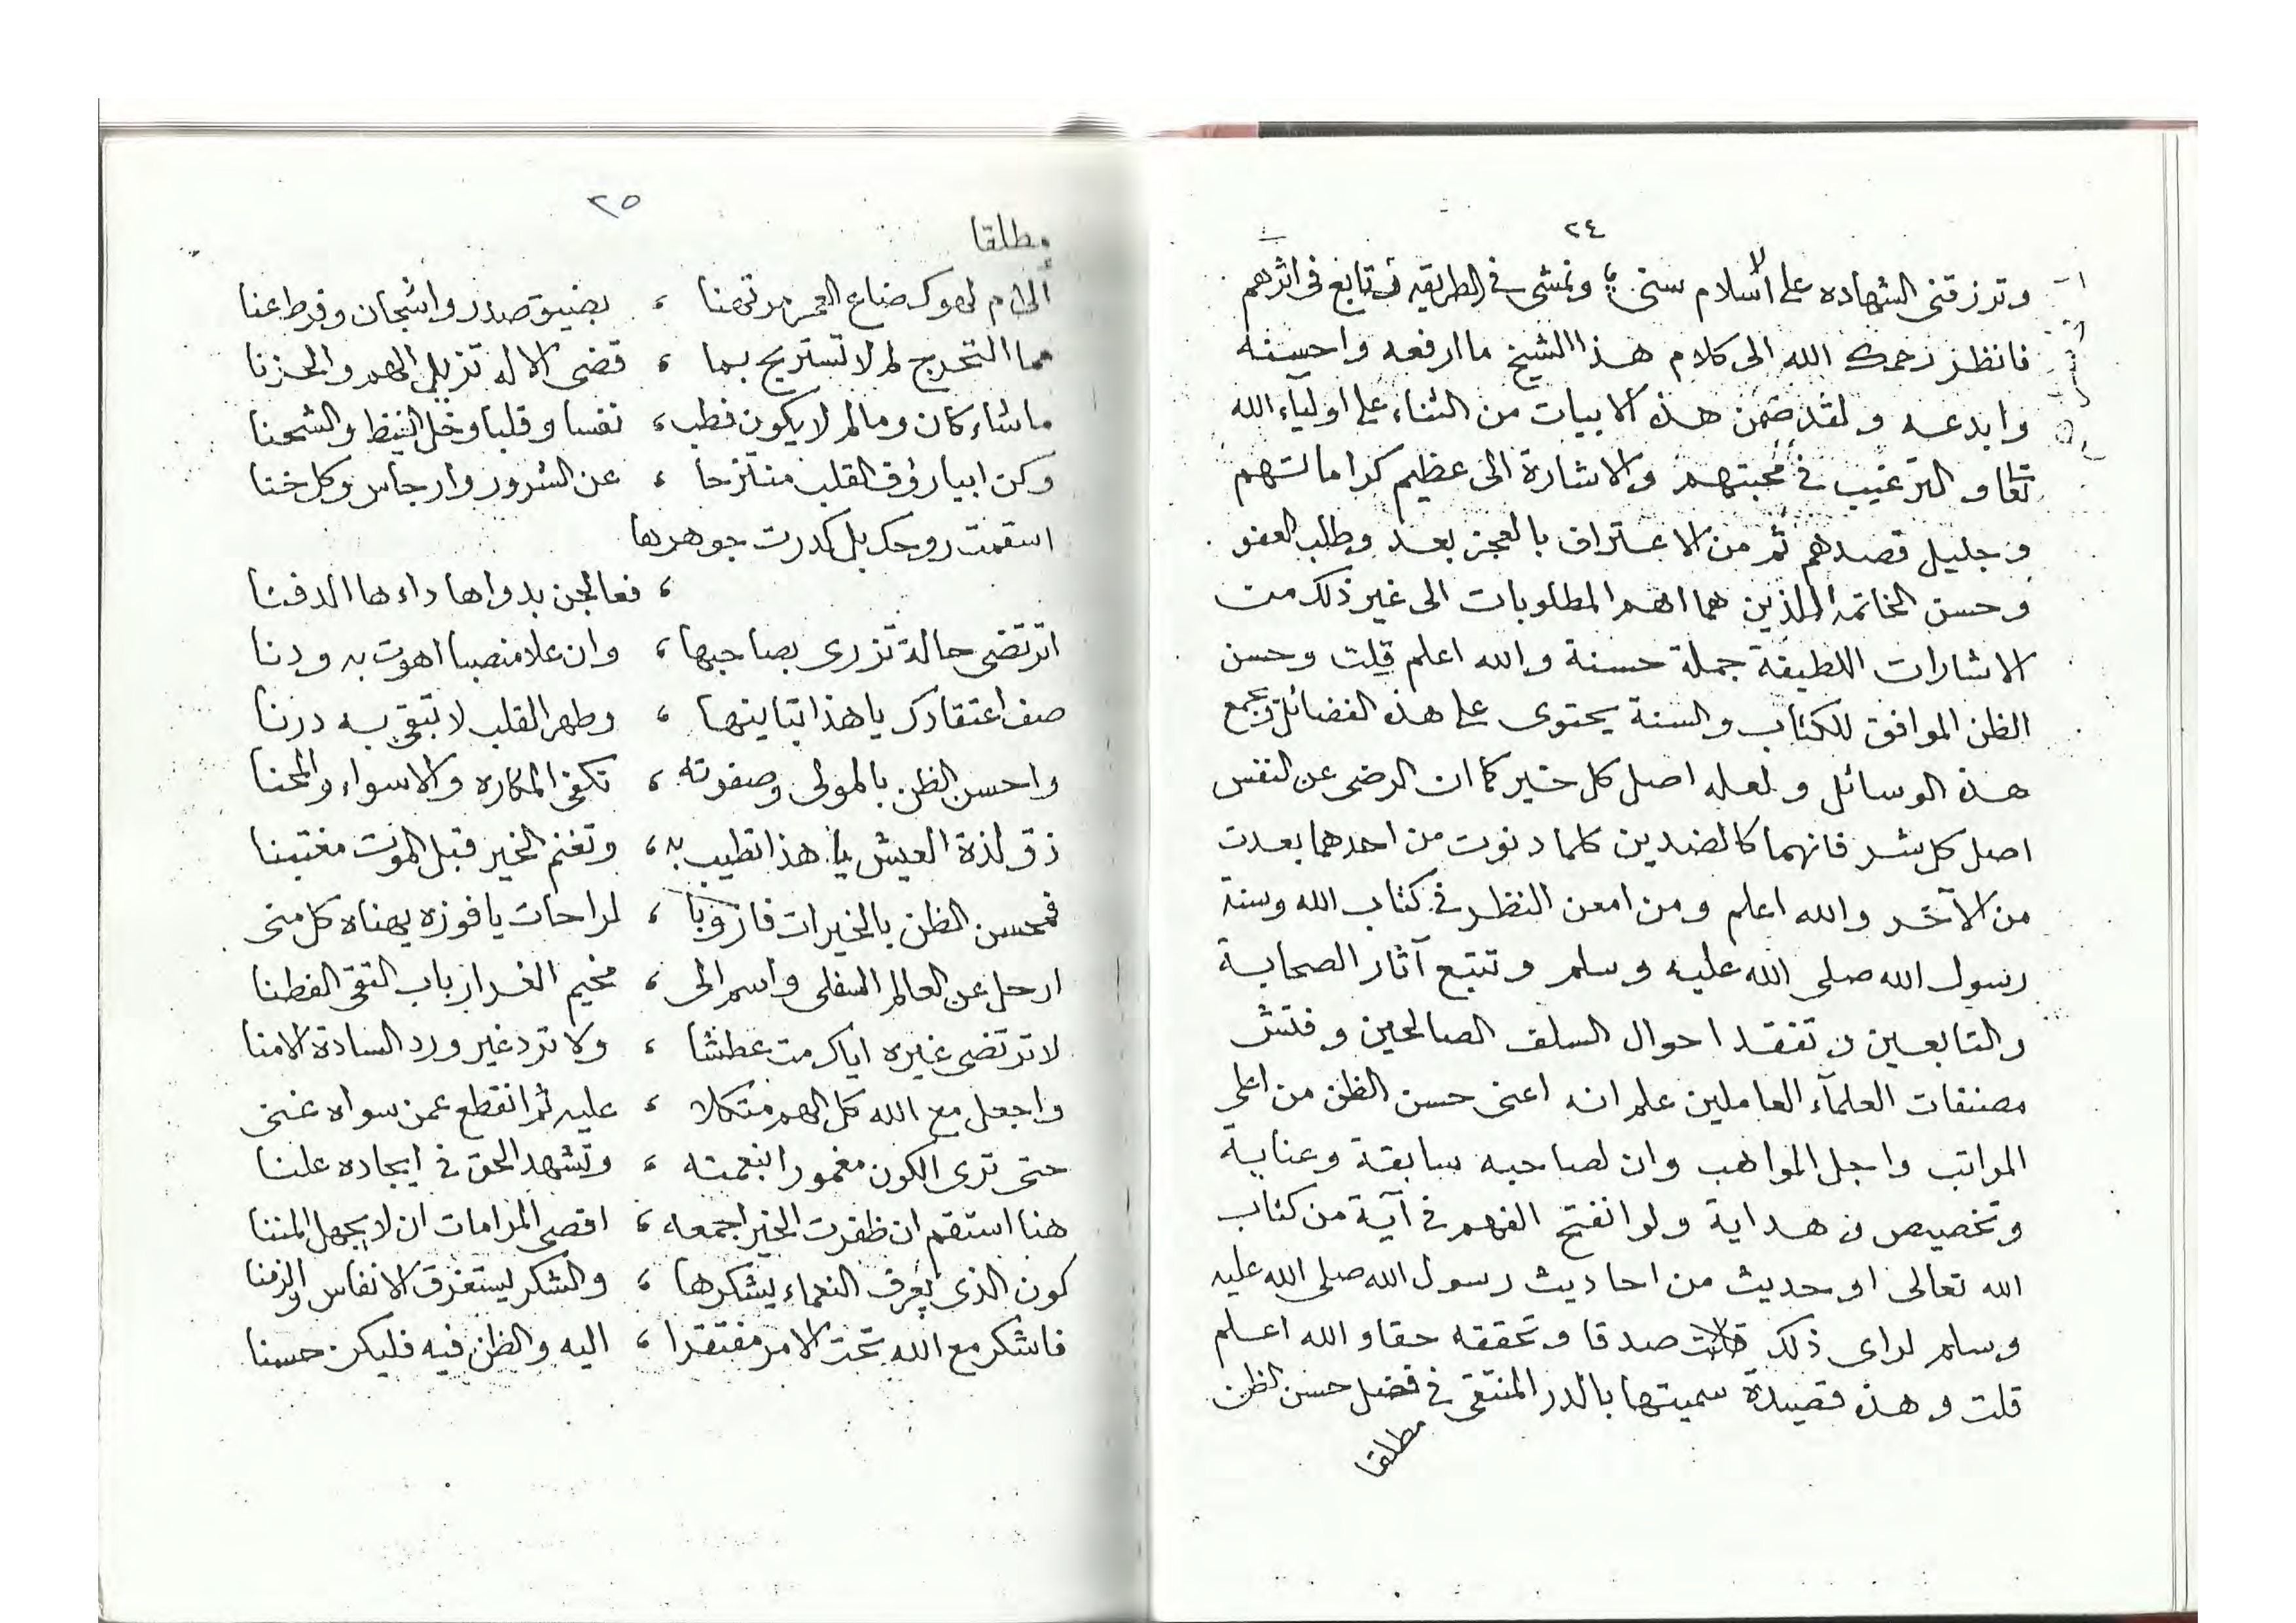 ٢٤
وترزقني الشهاده على الاسلام سني ؛ ونمشي في الطريقه نتابع في اثرهم
فانظر رحمك الله الى كلام هذا الشيخ ما ارفعه واحسنه
وابدعه ولقد ضمن هذه الابيات من الثناء على اولياء الله
تعا والترغيب في محبتهم والاشارة الى عظيم كراماتهم
وجليل قصدهم ثم من الاعتراف بالعجز بعد وطلب العفو
وحسن الخاتمه اللذين هما اهم المطلوبات الى غير ذلك من
الاشارات اللطيفة جملة حسنة والله اعلم قلت وحسن
الظن الموافق للكتاب والسنة يحتوى على هذه الفضائل وتجمع
هذه الوسائل ولعله اصل كل خير كما ان الرضى عن النفس
اصل كل شر فانهما كالضدين كلما دنوت من احدهما بعدت
من الآخر والله اعلم ومن امعن النظر في كتاب الله وسنة
رسول الله صلى الله عليه وسلم وتتبع آثار الصحابة
والتابعين وتفقد احوال السلف الصالحين وفتش
مصنفات العلمآء العاملين علم انه اعنى حسن الظن من اعلى
المراتب واجل المواهب وان لصاحبه سابقة وعناية
وتخصيص وهداية ولو انفتح الفهم في آية من كتاب
الله تعالى او حديث من احاديث رسول الله صلى الله عليه
وسلم لراى ذلك صدقا وتحققه حقا والله اعلم
قلت وهذه قصيدة سميتها بالدر المنتقى في فضل حسن الظن
مطلقا
٢٥
مطلقا
الى م لهوك ضاع العمر مرتهنا ، بضيق صدر واشجان وفرط عنا
مما التحرج لم لا تستريح بما ، قضى الاله تزيل الهم والحزنا
ما شاء كان وما لم لا يكون فطب ، نفسا وقلبا وخل الغيظ والشحنا
وكن ابيا رؤف القلب منتزحا ، عن الشرور وارجاس وكل خنا
اسقمت روحك بل كدرت جوهرها
، فعالجن بدواها داءها الدفنا
اترتضى حالة تزرى بصاحبها ، وان علا منصبا اهوت به ودنا
صف اعتقادك يا هذا بتاينها ، وطهر القلب لا تبقى به درنا
واحسن الظن بالمولى وصفوته ، تكفى المكاره والاسواء والمحنا
ذق لذة العيش يا هذا تطيب به ، وتغنم الخير قبل الموت مغتبنا
فمحسن الظن بالخيرات فاز وبا ، لراحات يا فوزه يهناه كل منى
ارحل عن العالم السفلى واسم الى ، مخيم الغر ارباب التقى الفطنا
لا ترتضى غيره اياك مت عطشا ، ولا ترد غير ورد السادة الامنا
واجعل مع الله كل الهم متكلا ، عليه ثم انقطع عمن سواه غنى
حتى ترى الكون مغمورا بنعمته ، وتشهد الحق في ايجاده علنا
هنا استقم ان ظفرت الخير اجمعه ، اقصى المرامات ان لا يجهل المننا
كون الذى يعرف النعماء يشكرها ، والشكر يستغرق الانفاس والزمنا
فاشكر مع الله تحت الامر مفتقرا ، اليه والظن فيه فليكن حسنا